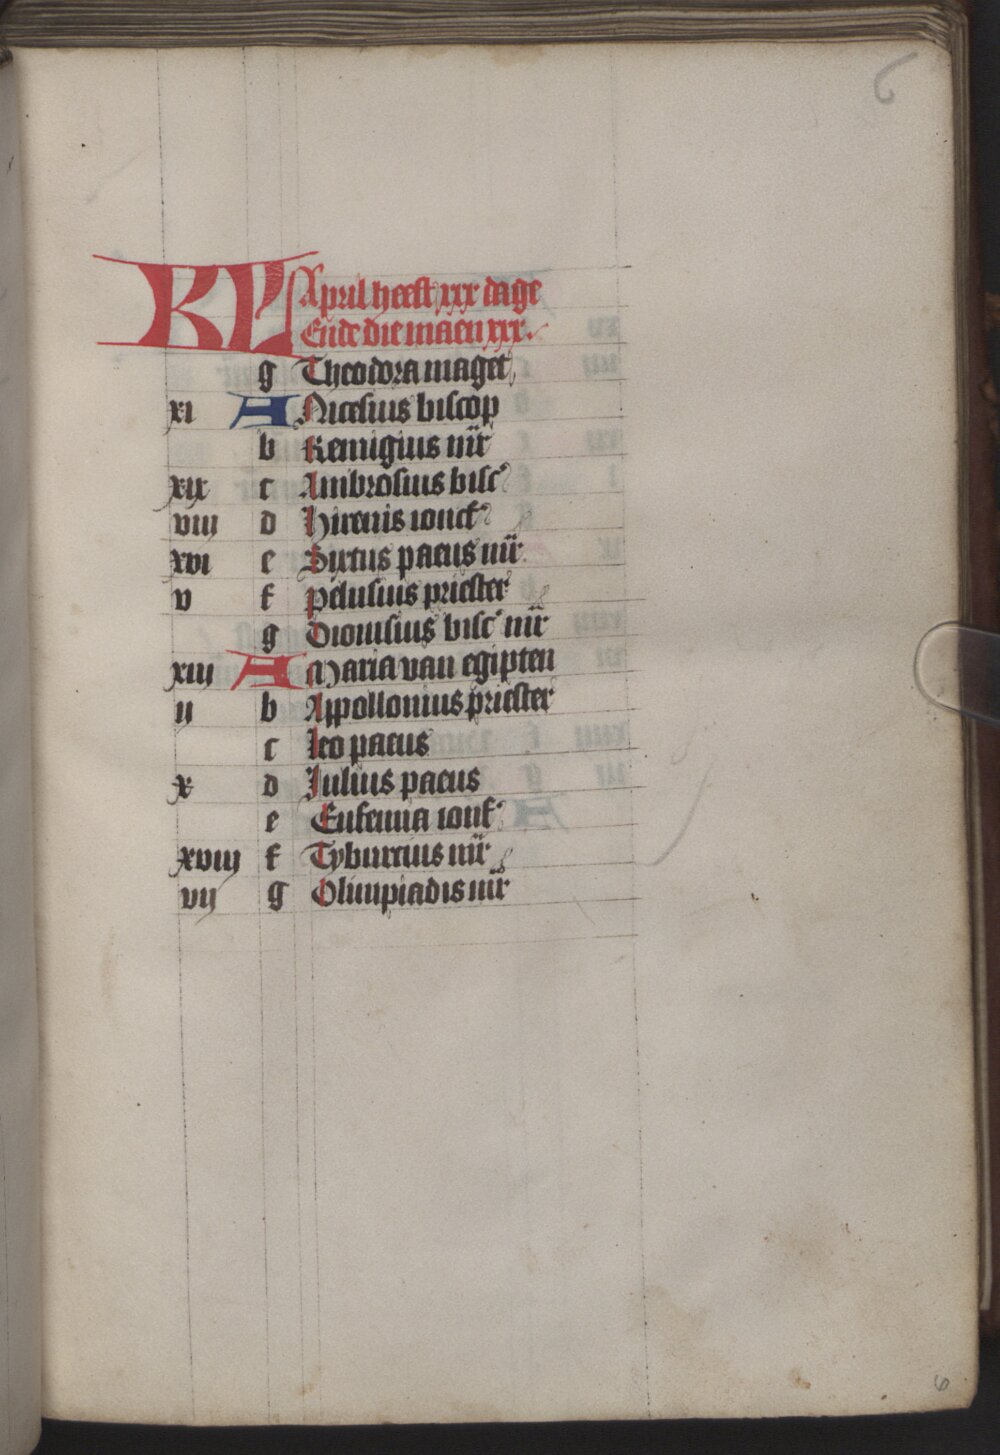 6
KL April heeft xxx dage
Ende die maen xxx.
g Theodora maget
xi A Nicesius biscop
b Remigius mr̄
xix c Ambrosius bisc
viii d Hirenis ioncf
xvi e Sixtus paeus mr̄
v f Pelusius priester
g Dionisius bisc mr̄
xiii A Maria van egipten
ii b Appollonius priester
c Leo paeus
x d Julius paeus
e Eufemia ionf
xviii f Tyburcius mr̄
vii g Olimpiadis mr̄
6